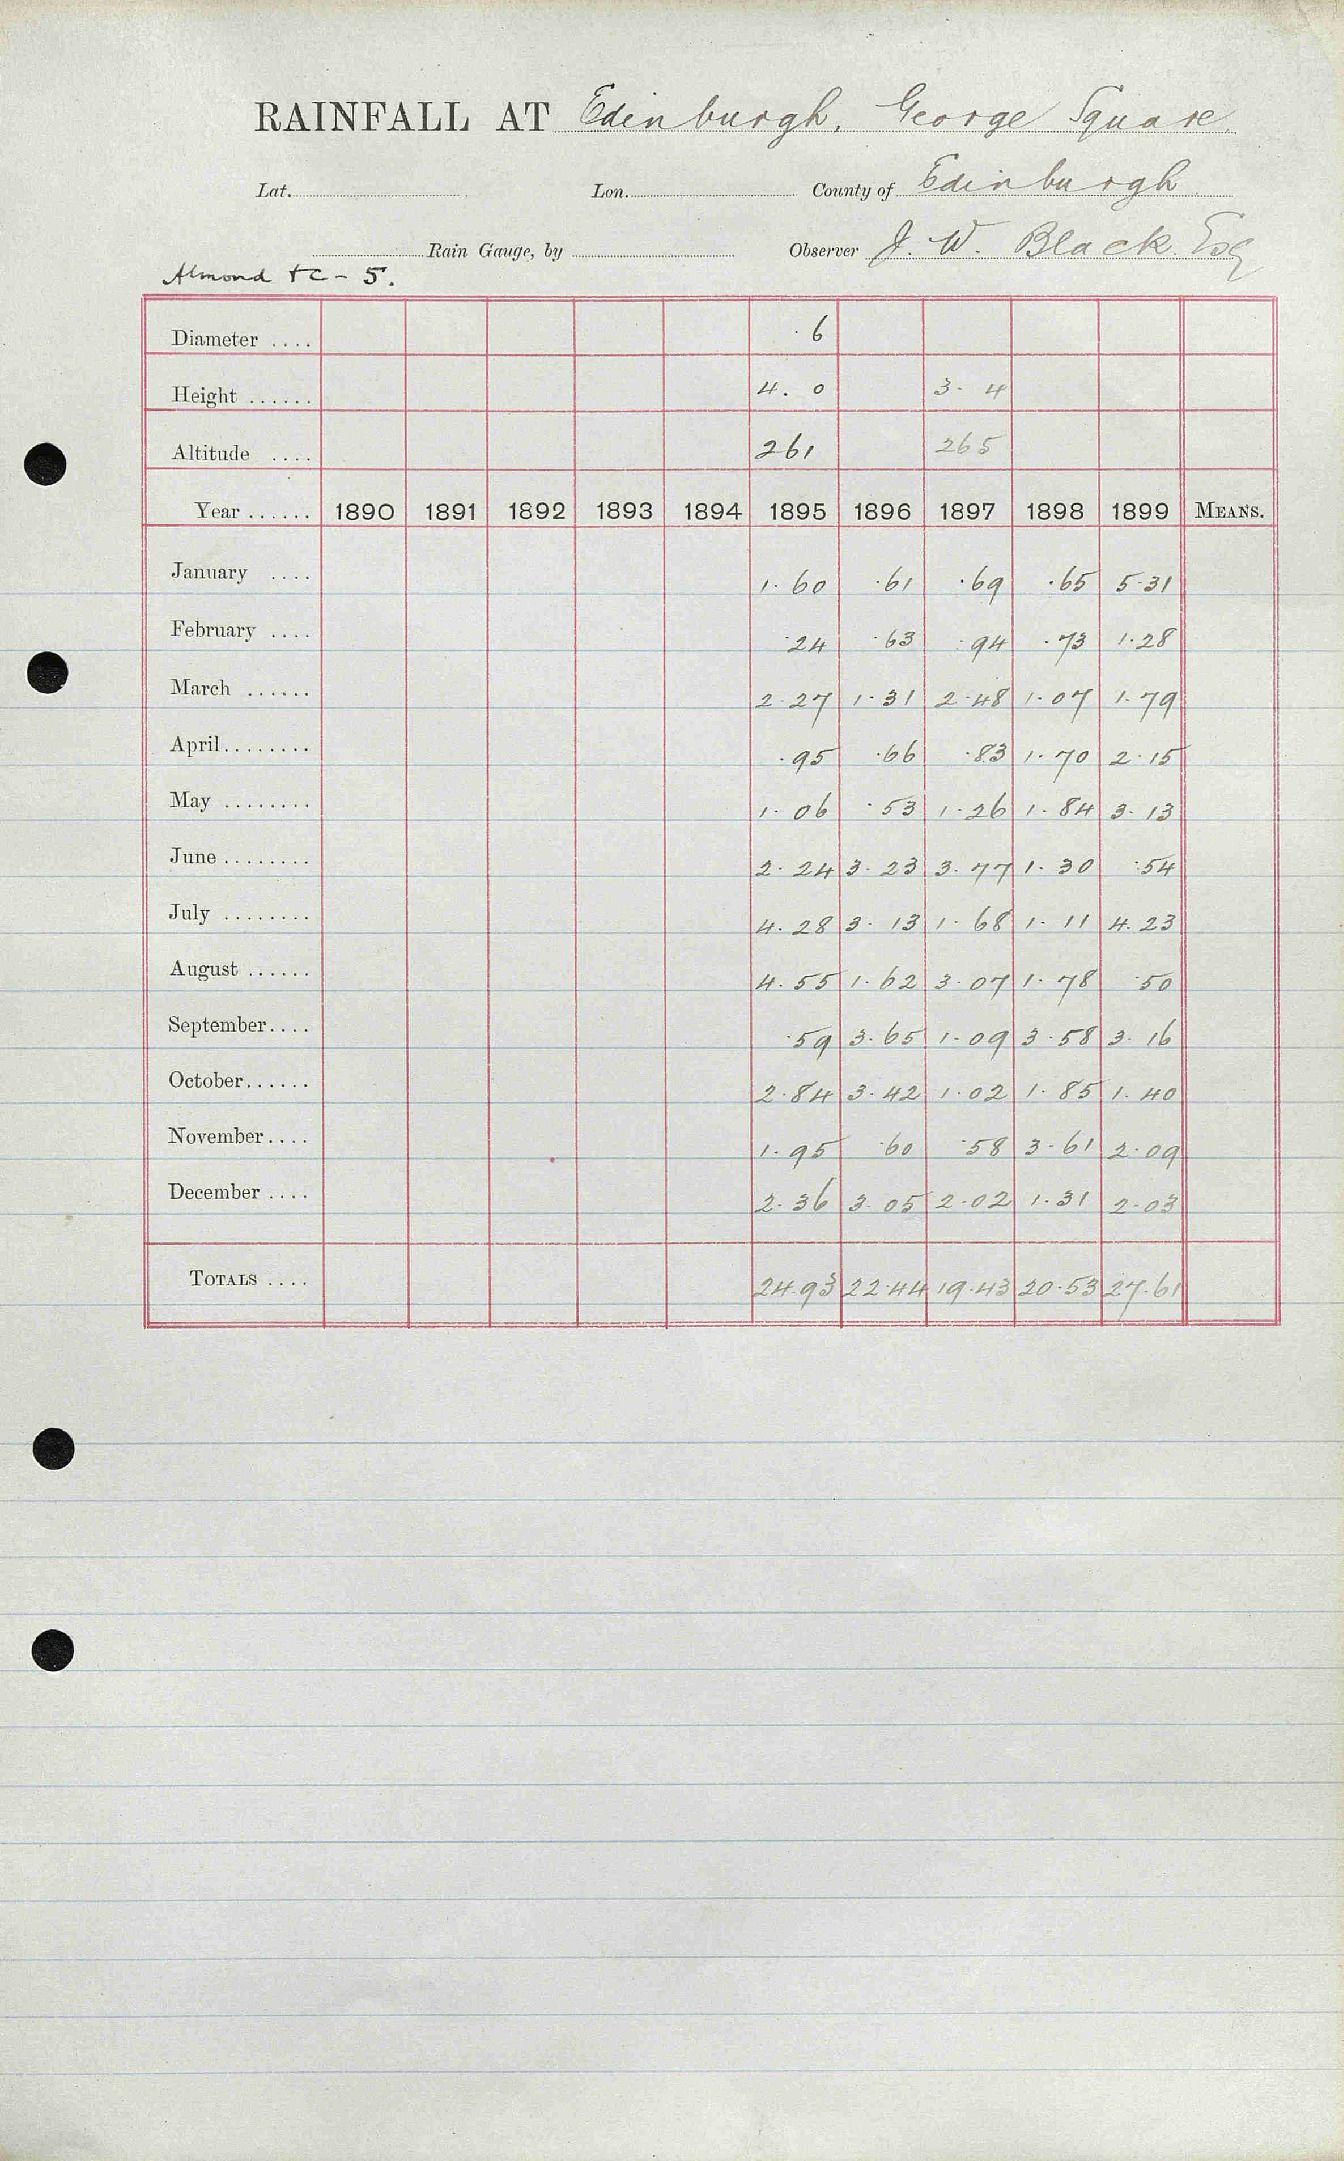 RAINFALL AT Edinburgh, George Square.
Lat. Lon. County of Edinburgh
Rain Gauge, by Observer J. W. Black Esq
Almond &c - 5.
Diameter .... 6
Height ...... 4. 0 3. 4
Altitude .... 261 265
Year ...... 1890 1891 1892 1893 1894 1895 1896 1897 1898 1899 MEANS.
January .... 1.60 .61 .69 .65 5.31
February .... .24 .63 .94 .73 1.28
March ...... 2.27 1.31 2.48 1.07 1.79
April........ .95 .66 .83 1.70 2.15
May ........ 1.06 .53 1.26 1.84 3.13
June ........ 2.24 3.23 3.77 1.30 .54
July ........ 4.28 3.13 1.68 1.11 4.23
August ...... 4.55 1.62 3.07 1.78 .50
September.... .59 3.65 1.09 3.58 3.16
October...... 2.84 3.42 1.02 1.85 1.40
November.... 1.95 .60 .58 3.61 2.09
December .... 2.36 3.05 2.02 1.31 2.03
TOTALS .... 24.93 22.44 19.43 20.53 27.61